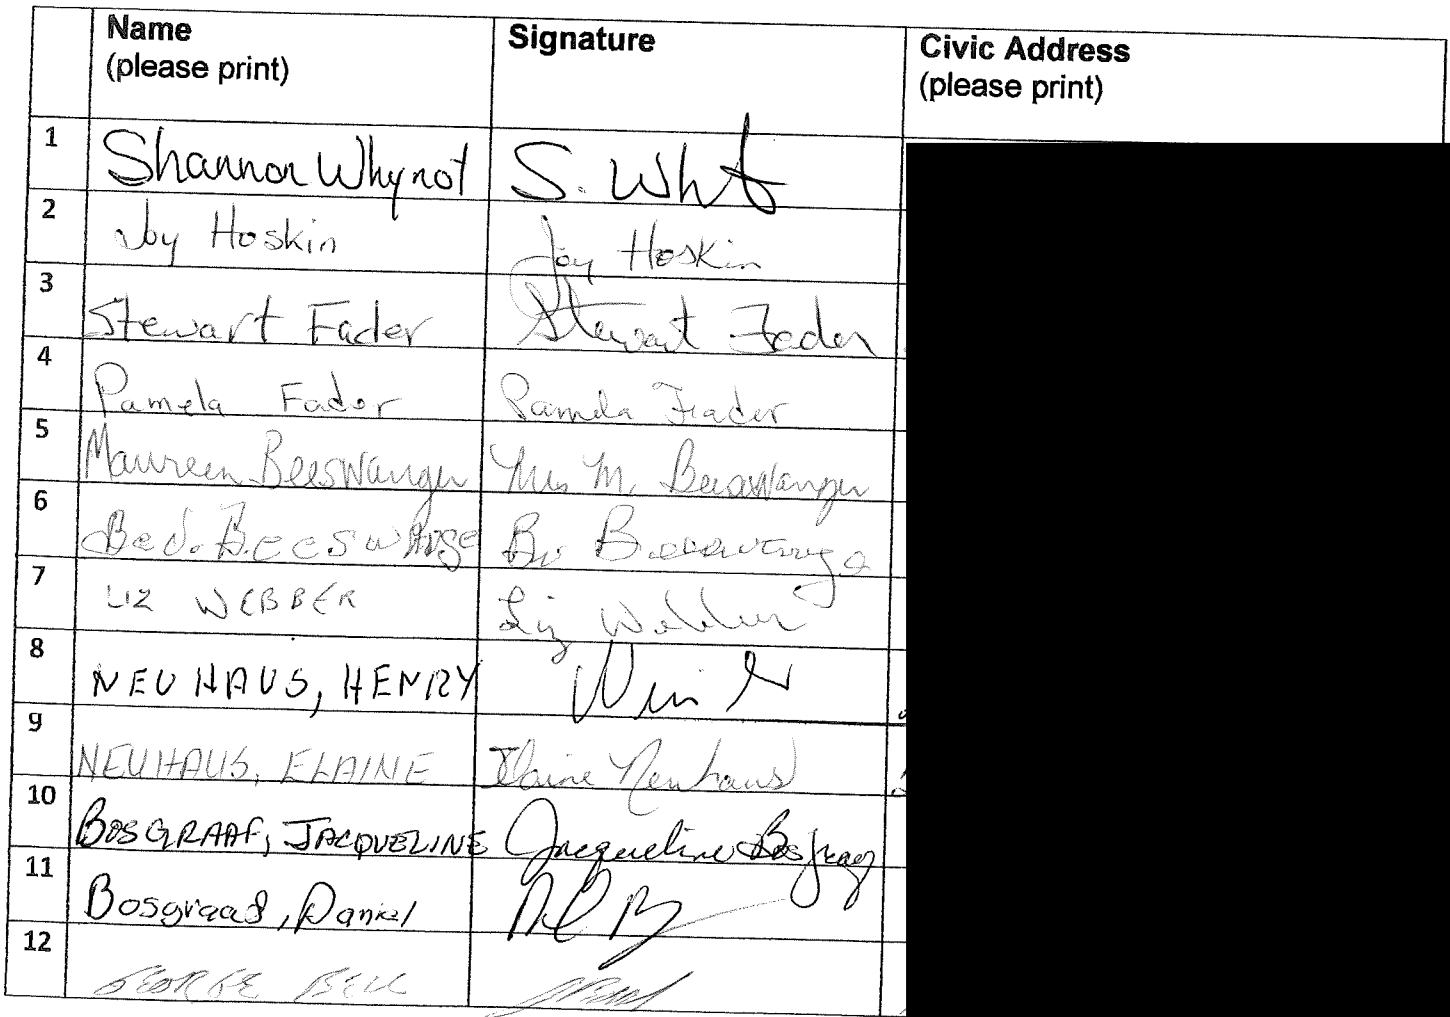 Name Signature Civic Address
(please print) (please print)
1 Shannon Whynot S. Wht
2 Joy Hoskin Joy Hoskin
3 Stewart Fader Stewart Fader
4 Pamela Fader Pamela Fader
5 Maureen Beeswanger Mrs M. Beeswanger
6 Beeswange
7 LIZ WEBBER Liz Webber
8 NEUHAUS, HENRY
9 NEUHAUS, ELAINE Elaine Neuhaus
10 BOSGRAAF, JACQUELINE Jacqueline Bosgraaf
11 Bosgraaf, Daniel
12 GEORGE BELL